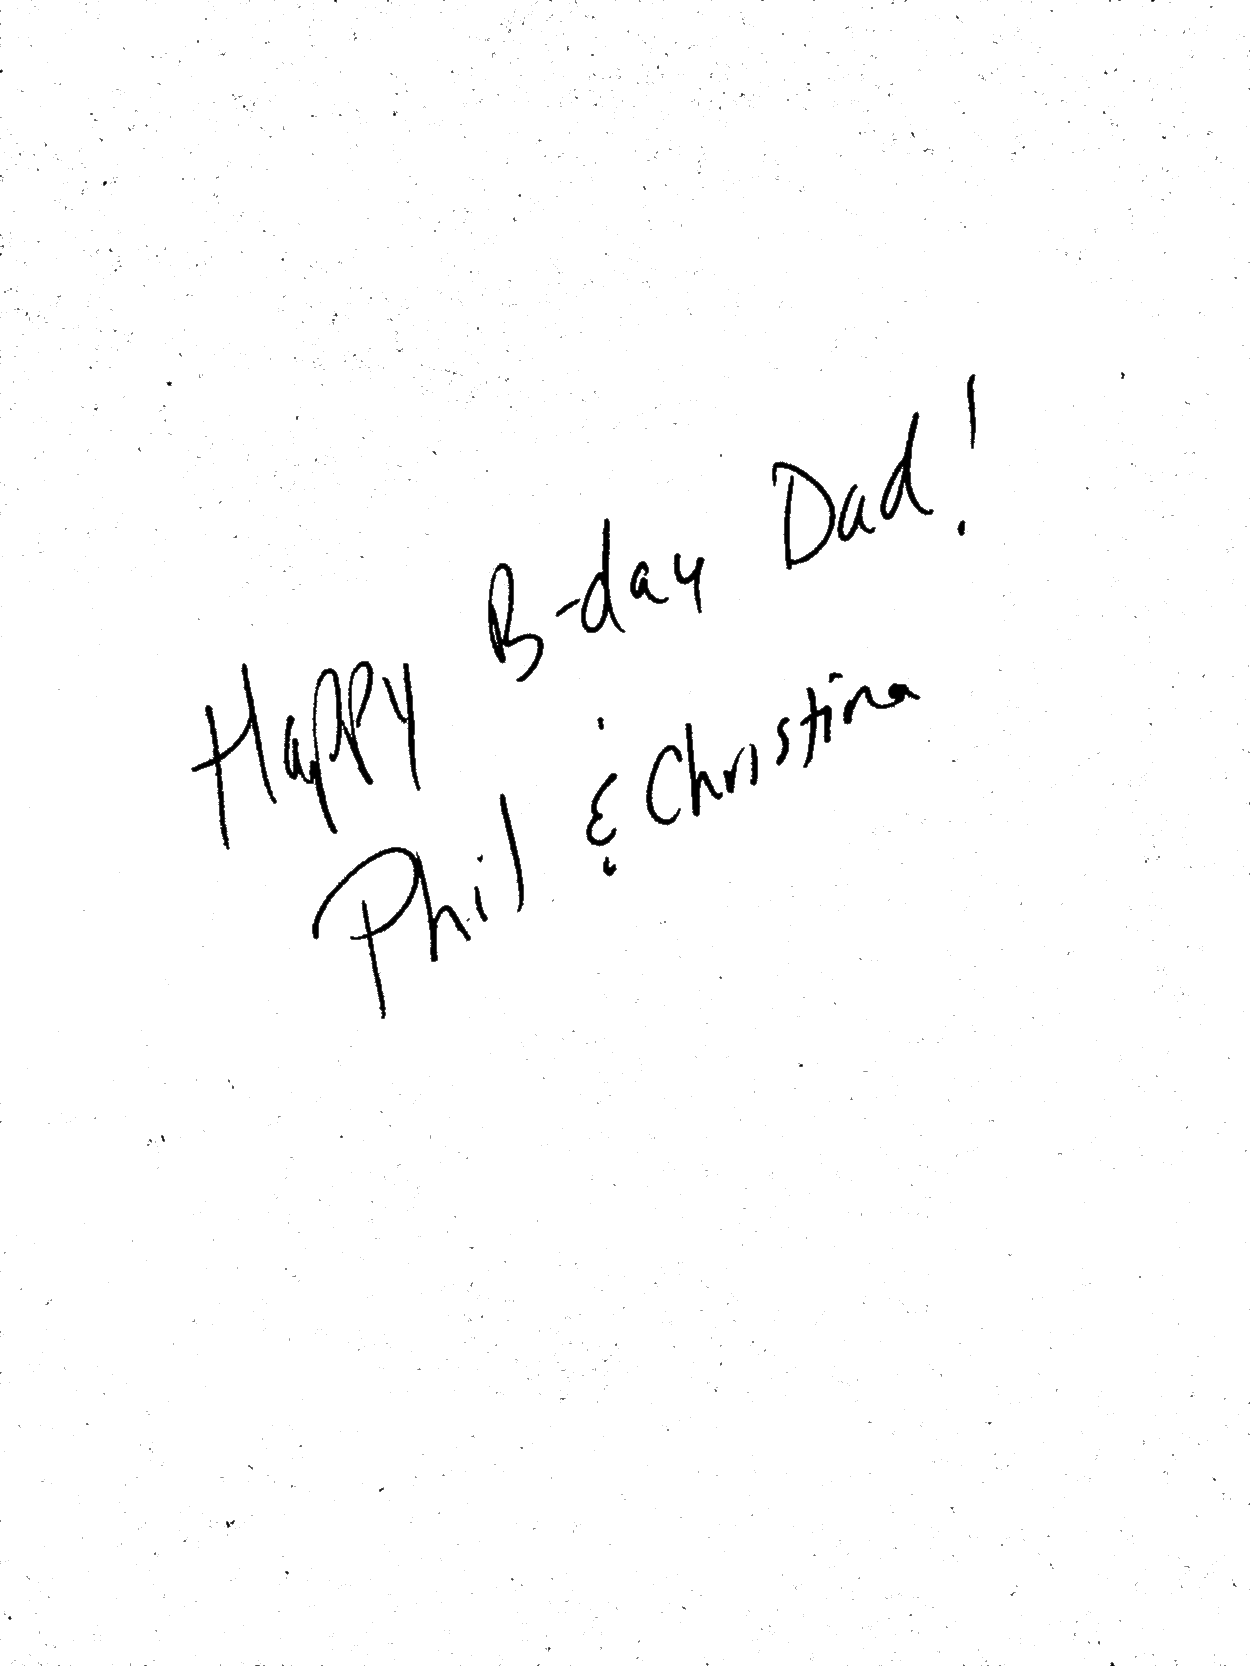 Happy B-day Dad!
Phil & Christina